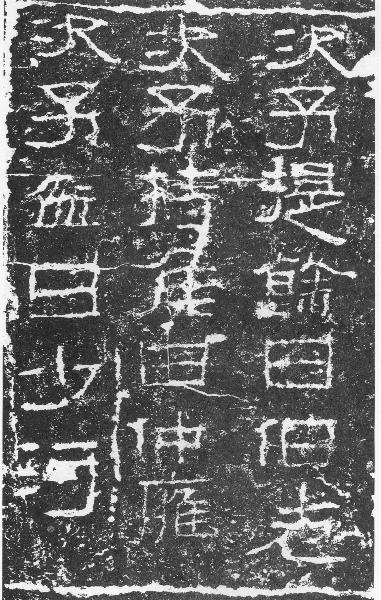 次子提餘曰伯老
次子持侯曰仲雍
次子盆曰少河